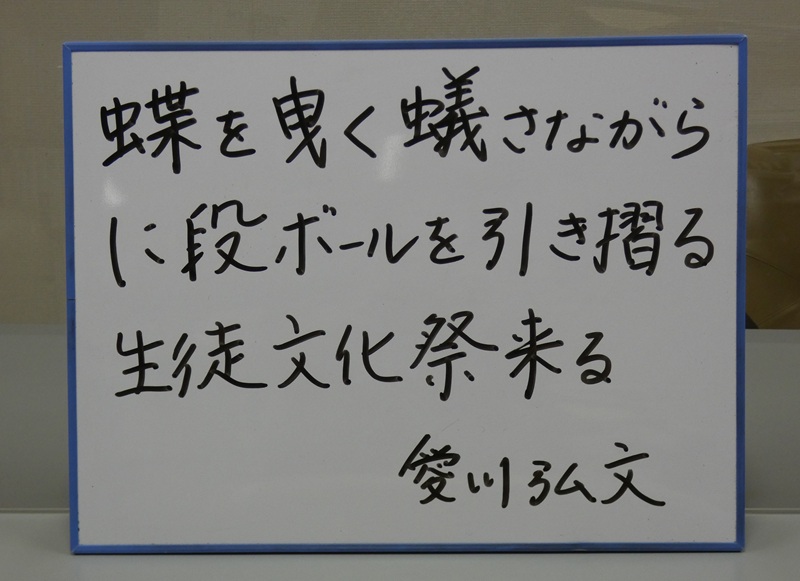 蝶を曳く蟻さながら
に段ボールを引き摺る
生徒文化祭来る
愛川弘文